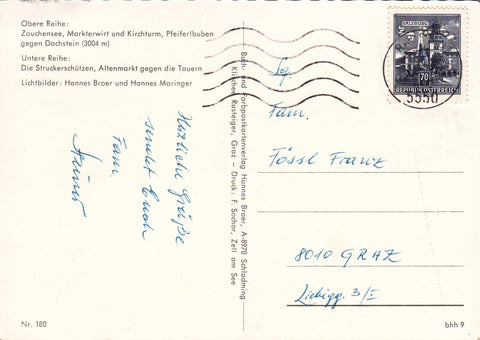 Obere Reihe:
Zauchensee, Markterwirt und Kirchturm, Pfeiferlbuben
gegen Dachstein (3004 m)
Untere Reihe:
Die Struckerschützen, Altenmarkt gegen die Tauern
Lichtbilder: Hannes Broer und Hannes Maringer
Herzliche Grüße
sendet Euch
Fam.
Buch- und Farbpostkartenverlag Hannes Broer, A-8970 Schladming
Klischee: Rasteiger, Graz - Druck: F. Sochor, Zell am See
SALZBURG
70
REPUBLIK ÖSTERREICH
5550
Fam.
Fössl Franz
8010 GRAZ
Liebigg. 3/I
Nr. 180
bhh 9